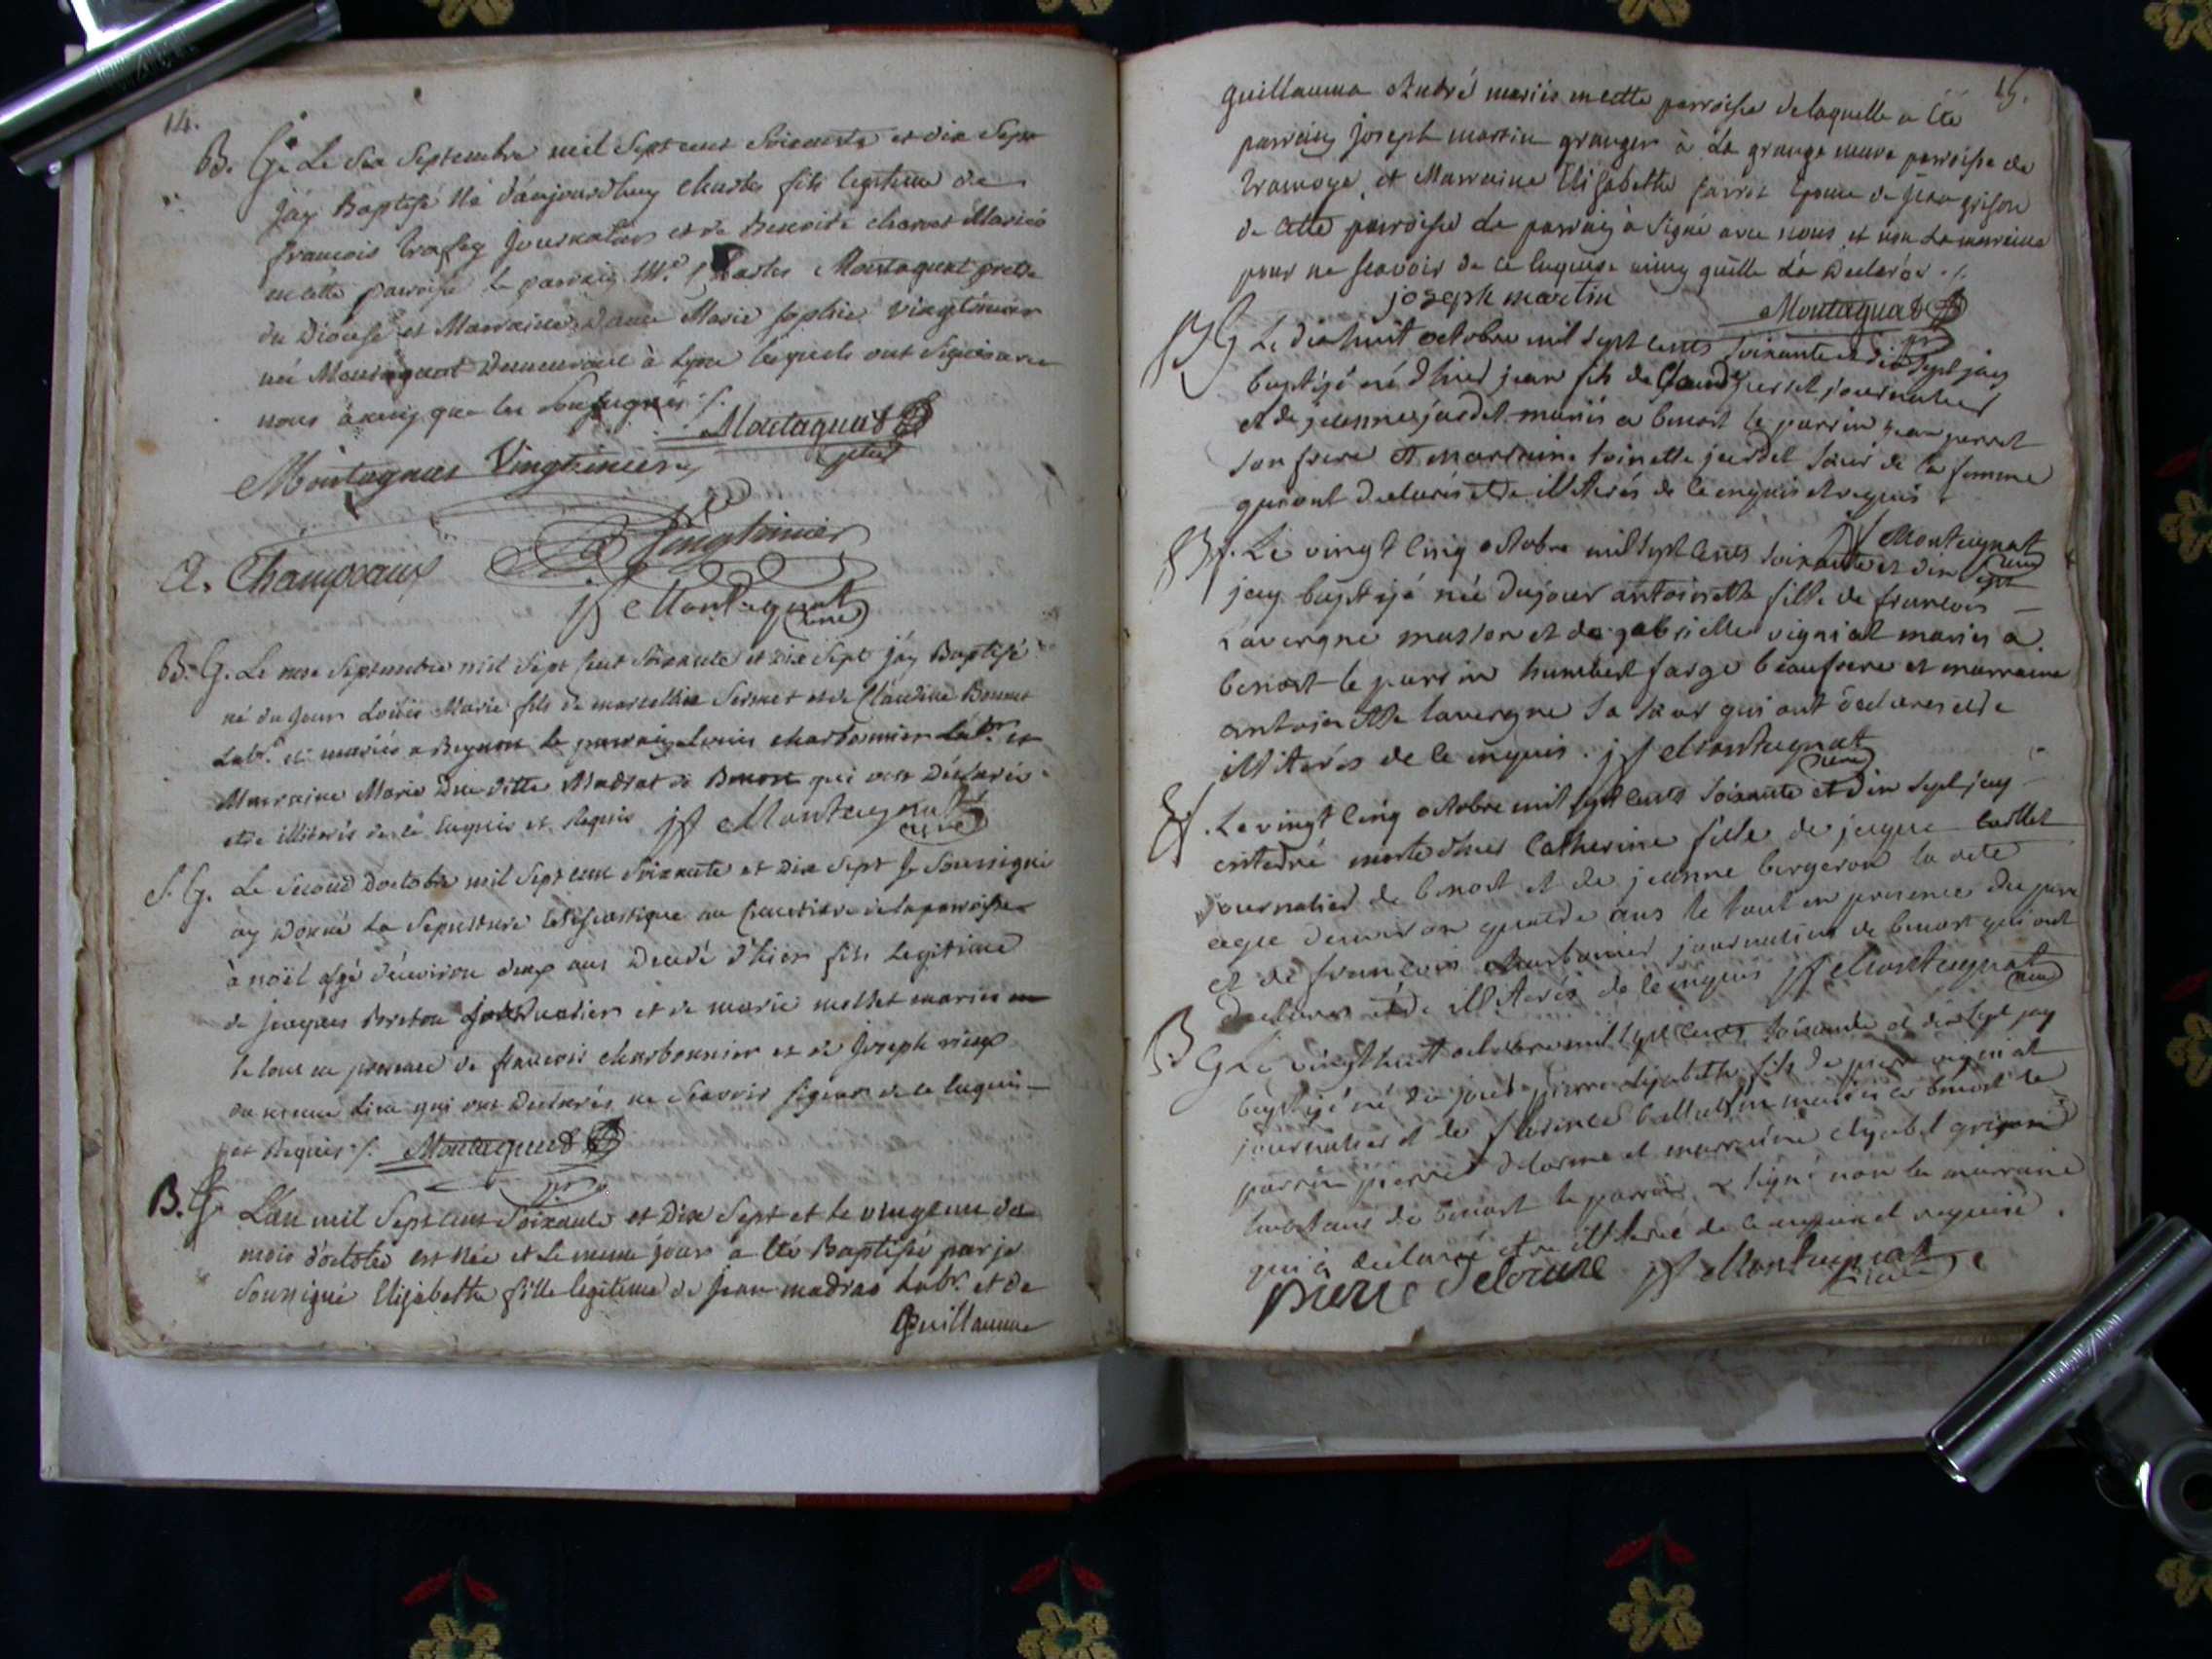 14.
B. G. Le Six Septembre mil Sept cent Soixante et dix Sept
J'ay Baptisé Né d'aujourdhuy Charles fils legitime de
francois journalier et de Benoite charvet Mariés
en cette paroisse le parrain Mr. Charles Montagnat pretre
du Diocese et Marraine Dame Marie Sophie Vingtimier
née Montagnat Demeurant à Lyon lesquels ont signés avec
nous ainsy que les Soussignés ./.
Montagnat
Montagnat Vingtrinier
Vingtrinier
A. Champeaux
jf Montagnat
curé
B. G. Le onze Septembre mil Sept cent Soixante et dix Sept j'ay Baptisé
né du jour Louis Marie fils de marcellin Sermet et de Claudine Bonnet
Labr. et mariés a Beynost le parrain Louis charbonnier Labr. et
Marraine Marie Dite Madras de Benost qui ont Déclarés
etre illiterés de ce Enquis et Requis jf Montagnat
curé
S. G. Le Second d'octobre mil Sept cent Soixante et Dix Sept je Soussigné
ay Donné La Sepulture Eclesiastique au Cimetiere de la paroisse
à noël agé d'environ deux ans Decedé d'hier fils Legitime
de jacques Breton Journalier et de marie mollet mariés
le tout en presence de francois charbonnier et de Joseph rieux
du meme Lieu qui ont Declarés ne Scavoir signer de ce Enquis
et Requis ./. Montagnat
B. G. L'an mil Sept cent Soixante et Dix Sept et le vingt un du
mois d'octobre est Née et le meme jour a été Baptisée par je
Soussigné Elisabeth fille legitime de jean madras Labr. et de
Guillauma
15.
guillauma André mariés en cette parroisse delaquelle a été
parrain joseph martin granger à La grange neuve parroisse de
tramoye, et Marraine Elisabeth Epouse de jean grison
de cette parroisse Le parrain à Signé avec nous et non La marraine
pour ne scavoir de ce Enquise ainsy qu'elle L'a Declaré ./.
joseph martin
Montagnat
B G Le dix huit octobre mil sept cents soixante et dix sept jay
baptizé né dhier jean fils de Claude perret journalier
et de jeanne jardet mariés a benost le parrin jean perret
son frere et marraine toinette jardet soeur de la femme
qui ont declarés etre illiterés de ce enquis et requis
jf Montagnat
curé
B g. Le vingt cinq octobre mil sept cents soixante et dix sept
jay baptizé née du jour antoinette fille de francois
Lavergne masson et de gabrielle vigniat mariés a
benost le parrin humbert farge beaufrere et marraine
antoinette lavergne sa soeur qui ont declarés etre
illiterés de ce enquis. jf Montagnat
curé
S g. Le vingt cinq octobre mil sept cents soixante et dix sept jay
enterré morte dhier Catherine fille de jaque
journalier de benost et de jeanne bergeron
agee denviron ans le tout en presence du pere
et de francois charbonier journalier de benost qui ont
declarés etre illiterés de ce enquis jf Montagnat
curé
B G Le vingt huit octobre mil sept cents soixante et dix sept jay
baptizé né du jour pierre elizabeth fils de pierre vigniat
journalier et de mariés a benost le
parrin pierre delorme et marraine elizabet grizon
habitans de benost le parrin a signé non la marraine
qui a declaré etre illiteré de ce enquise et requise.
pierre delorme jf Montagnat
curé